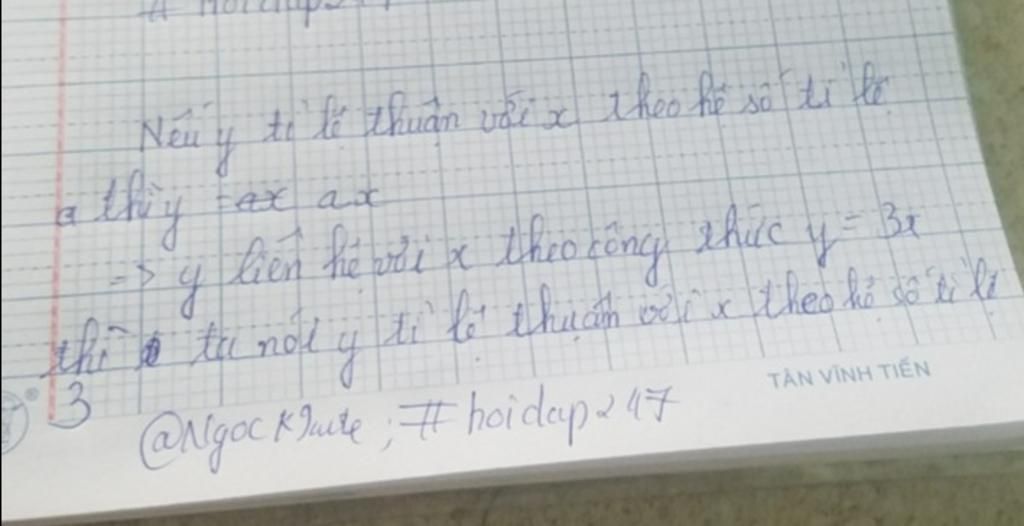 # hoidap
Nếu y tỉ lệ thuận với x theo hệ số tỉ lệ
a thì y = ax ax
=> y liên hệ với x theo công thức y = 3x
thì ta nói y tỉ lệ thuận với x theo hệ số tỉ lệ
3
TÂN VĨNH TIẾN
@Ngoc ; # hoidap247